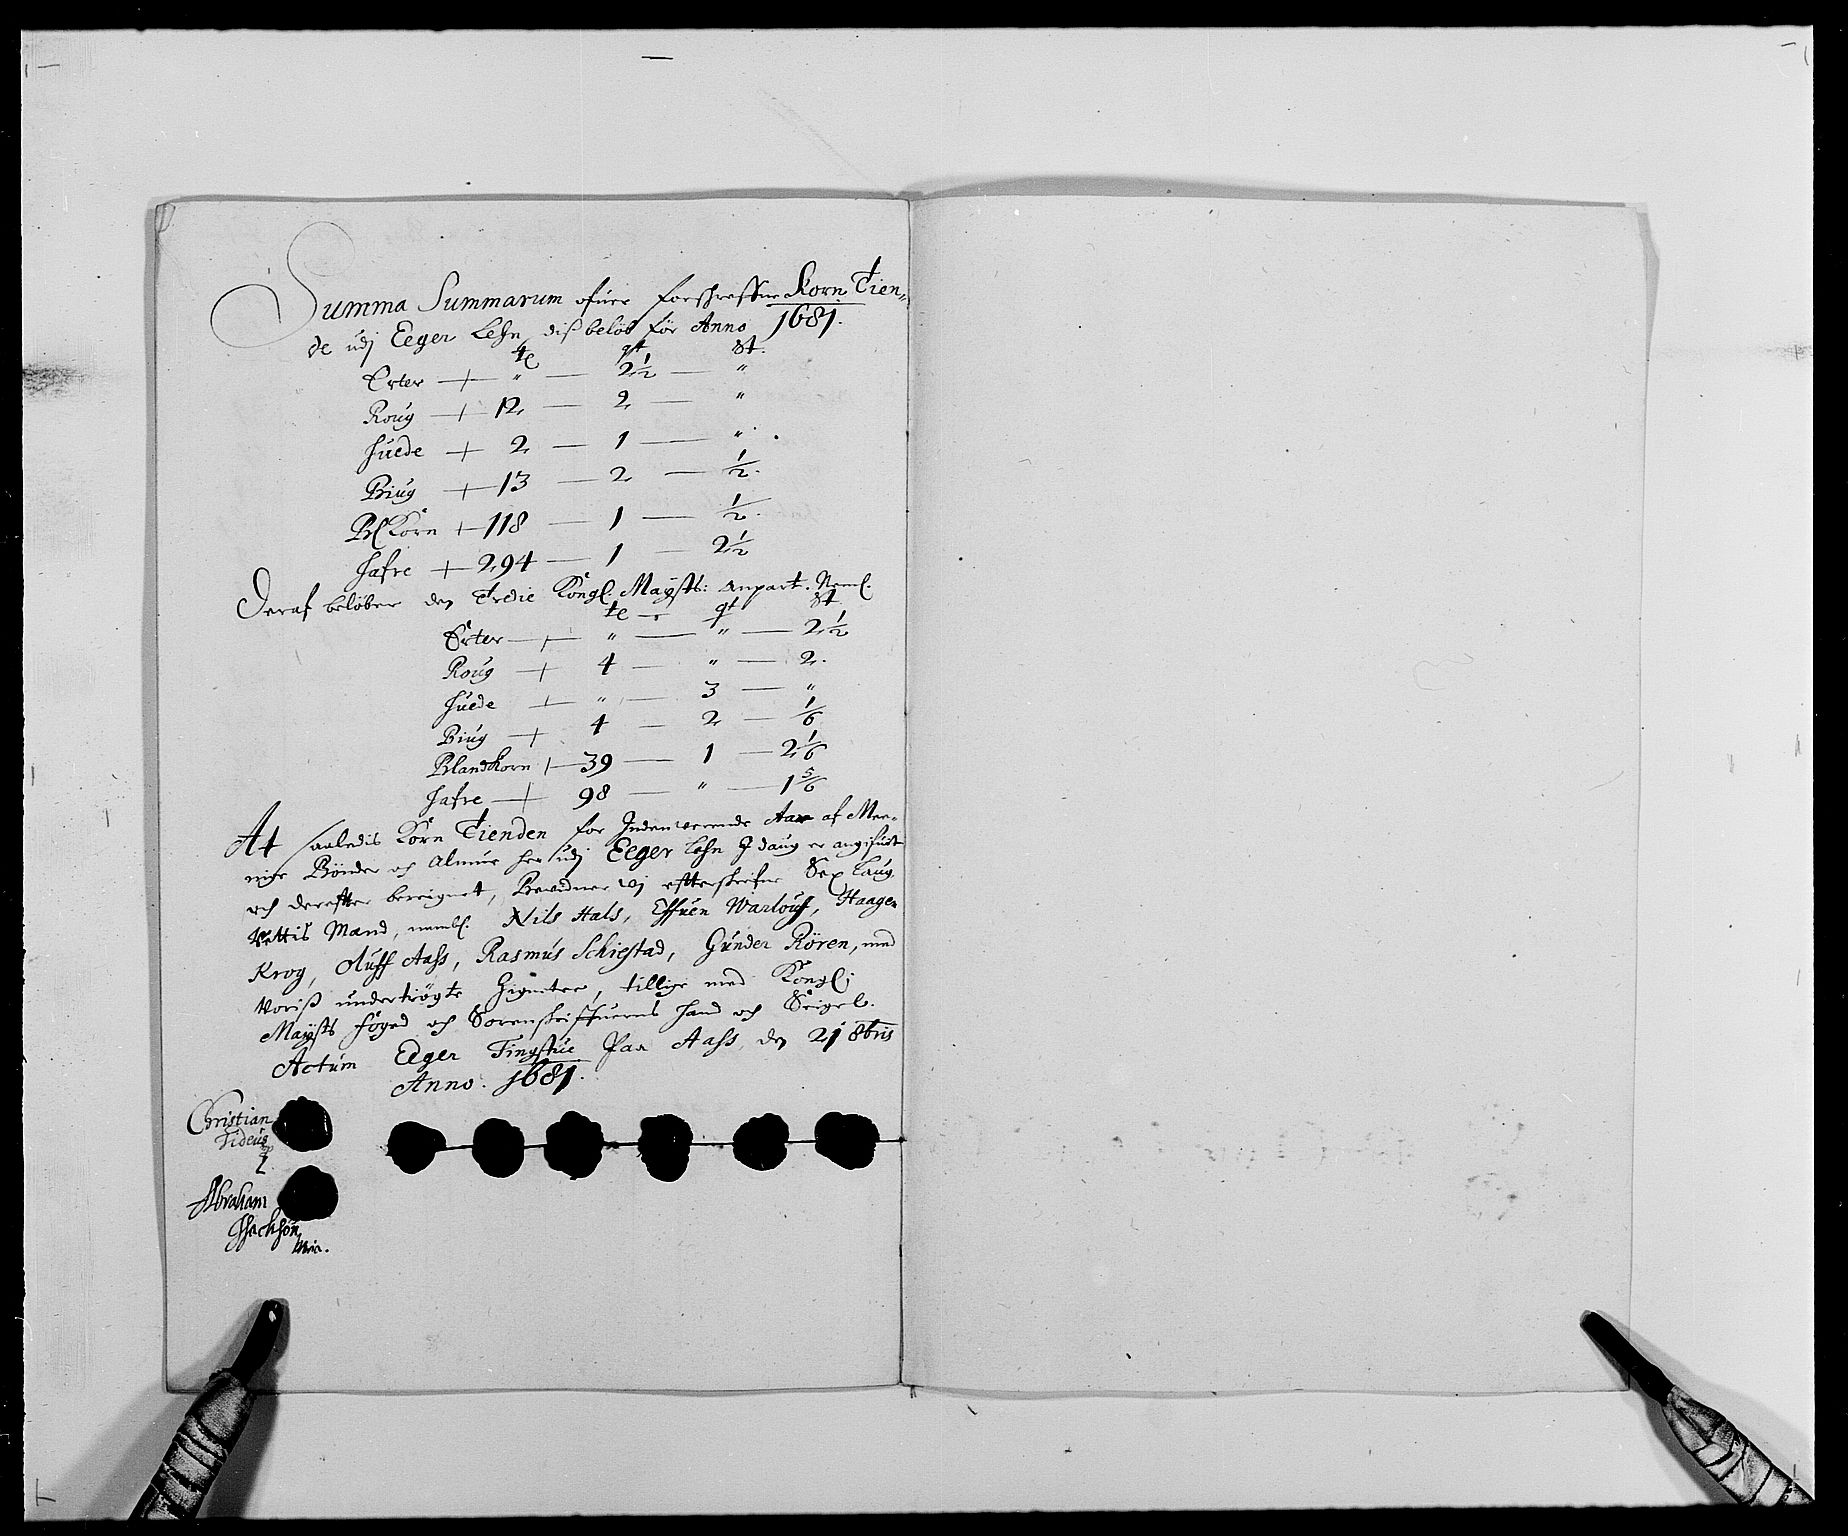 Summa Summarum ofuer forschrefne Korn Tien,,
de udj Eeger Lehn, diß beløb før Anno 1681.
te qrt St.
Erter + " — 2½ — "
Roug + 12 — 2 — "
Huede + 2 — 1 — "
Biug + 13 — 2 — ½.
Bl Korn + 118 — 1 — ½.
Hafre + 294 — 1 — 2½
Deraf beløber den Tredie Kongl. Maysts: anpart. Neml.
te — qt St
Erter + " — " — 2½
Roug + 4 — " — 2.
Huede + " — 3 — "
Biug + 4 — 2 — 1/6
Blandkorn + 39 — 1 — 2 1/6
Hafre + 98 — " — 1 5/6
At saaledis Korn Tienden for Indeuverende Aar af Mee,,
nige Bönder och Almue her udj Eeger Lehn I daug er angifuet
och derefter bereignet, Bevidner Wj efterskrefne Sex Laug
Rettis Mænd, nembl. Nils Hals, Effuen Warlouff, Haagen
Krog, Oluff Aass, Rasmus Schiestad, Gunder Kören, med
Voriß undertrögte Zigneter, tillige med Kongl:
Maysts Foged och Sorenskrifuerens Hand och Seigel.
Actum Eeger Tingstue Paa Aass, den 21 8bris
Anno. 1681.
Christian
Tideus
Abraham
Jsachsøn